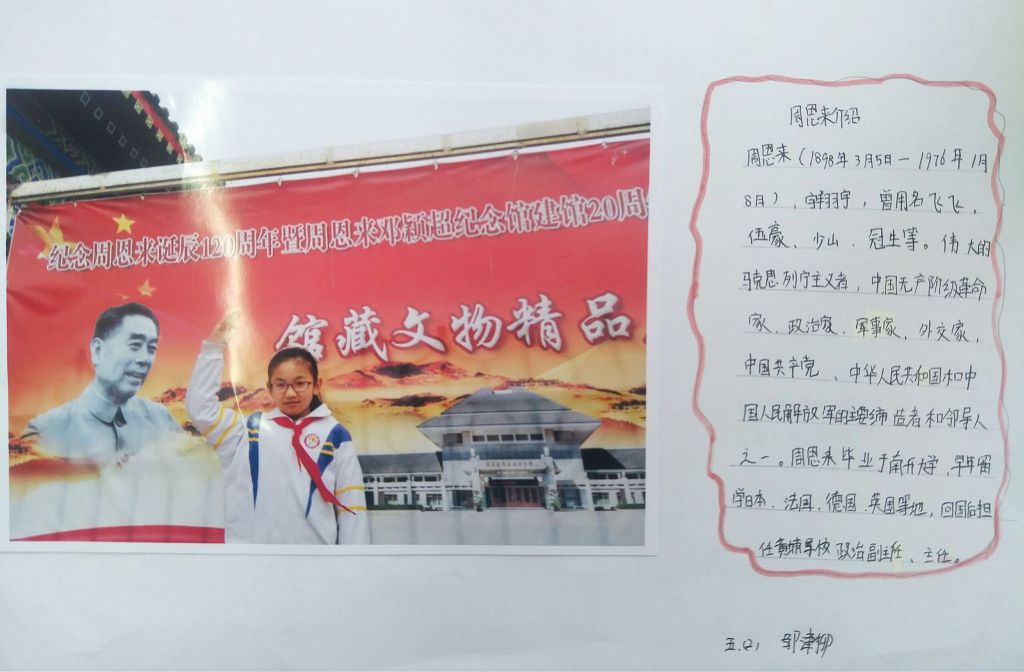 纪念周恩来诞辰120周年暨周恩来邓颖超纪念馆建馆20周
馆藏文物精品
周恩来介绍
周恩来（1898年3月5日－1976年1月
8日），字翔宇，曾用名飞飞，
伍豪、少山、冠生等。伟大的
马克思列宁主义者，中国无产阶级革命
家、政治家、军事家、外交家，
中国共产党、中华人民共和国和中
国人民解放军的主要缔造者和领导人
之一。周恩来毕业于南开大学，早年留
学日本、法国、德国、英国等地，回国后担
任黄埔军校政治副主任、主任。
五.(2) 邹津柳